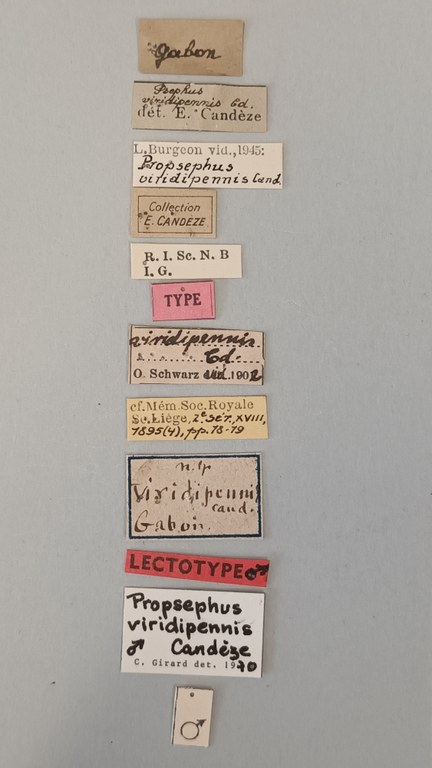 Gabon
Psephus
viridipennis Cd.
dét. E. Candèze
L. Burgeon vid., 1945:
Propsephus
viridipennis Cand.
Collection
E. CANDEZE
R. I. Sc. N. B
I. G.
TYPE
viridipennis
Cd.
O. Schwarz vid. 1902
cf. Mém. Soc. Royale
Sc. Liège, 2e sér., XVIII,
1895(4), pp. 18-19
viridipennis
cand.
Gabon.
LECTOTYPE ♂
Propsephus
viridipennis
♂ Candèze
C. Girard det. 1970
♂